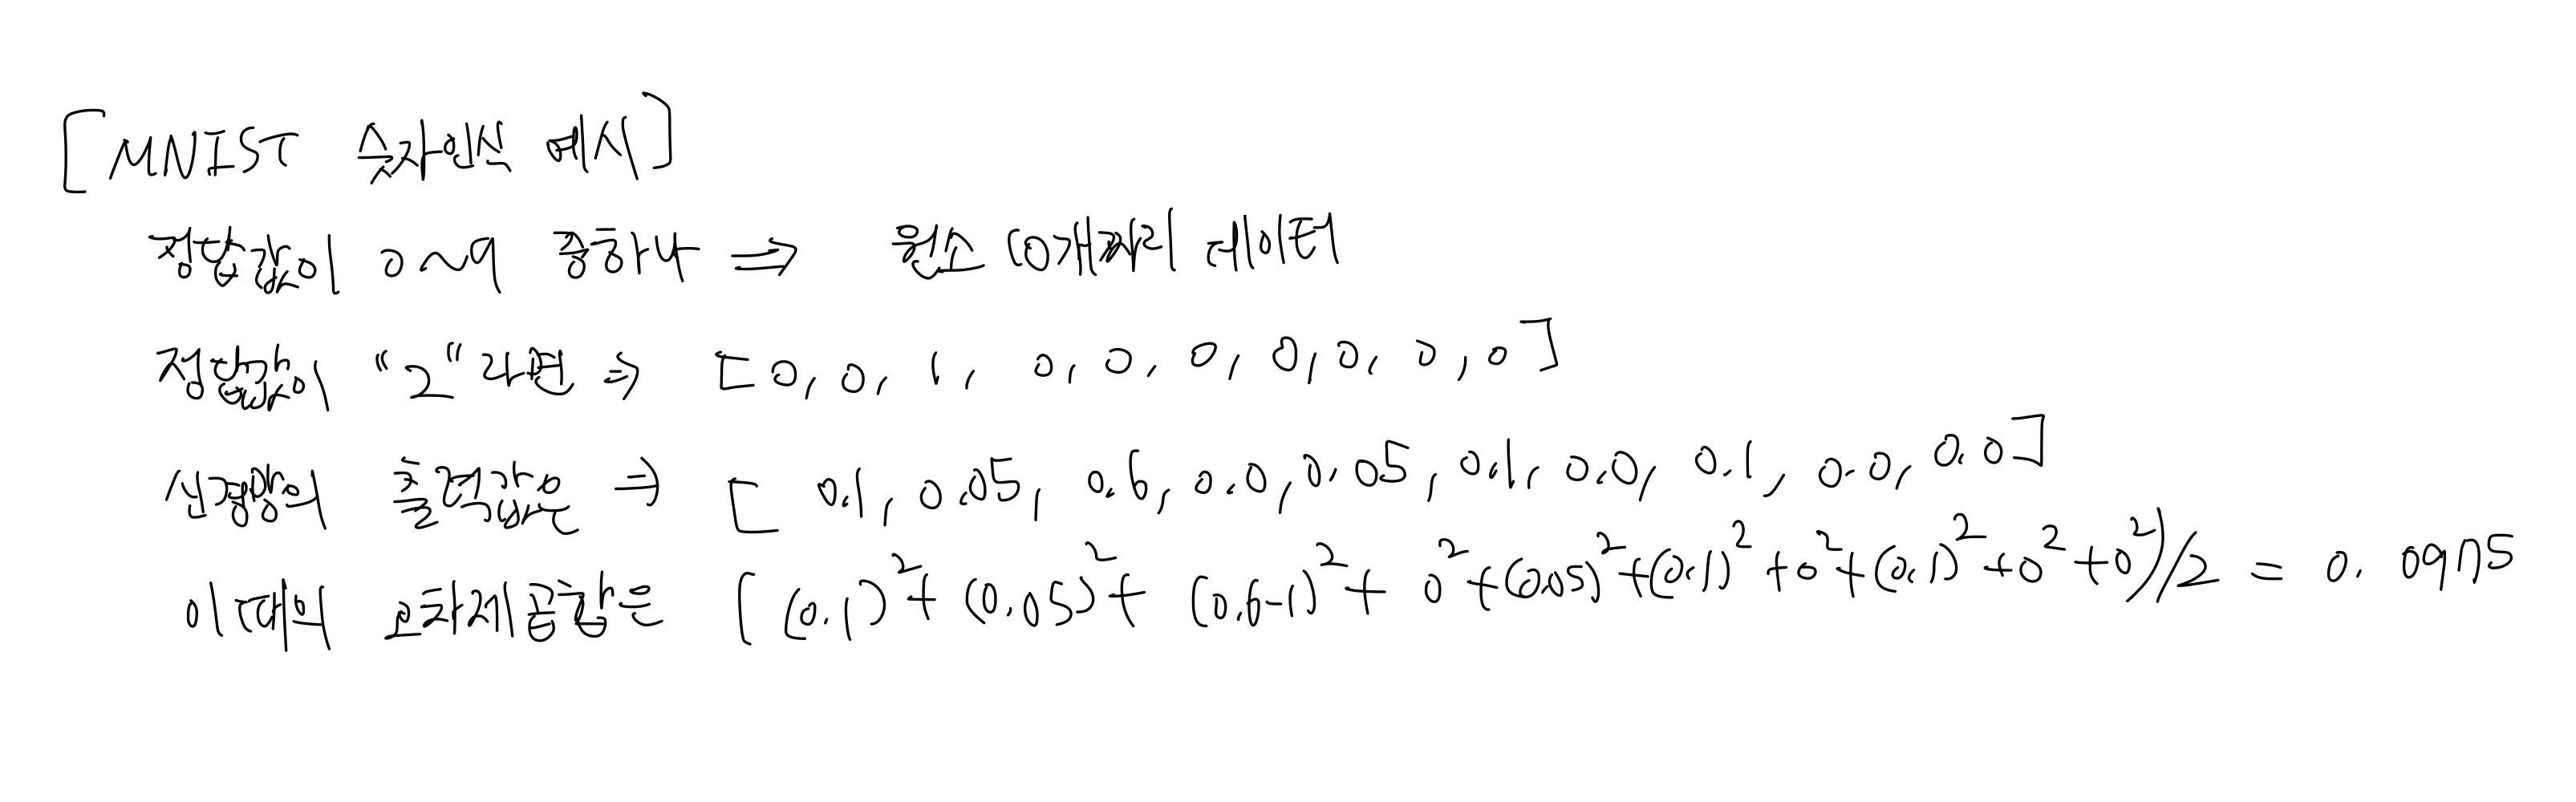 [MNIST 숫자인식 예시]
정답값이 0~9 중하나 ⇒ 원소 10개짜리 데이터
정답값이 "2"라면 ⇒ [0, 0, 1, 0, 0, 0, 0, 0, 0, 0]
신경망의 출력값은 ⇒ [0.1, 0.05, 0.6, 0.0, 0.05, 0.1, 0.0, 0.1, 0.0, 0.0]
이때의 오차제곱합은 ((0.1)²+(0.05)²+(0.6-1)²+0²+(0.05)²+(0.1)²+0²+(0.1)²+0²+0²)/2 = 0.0975